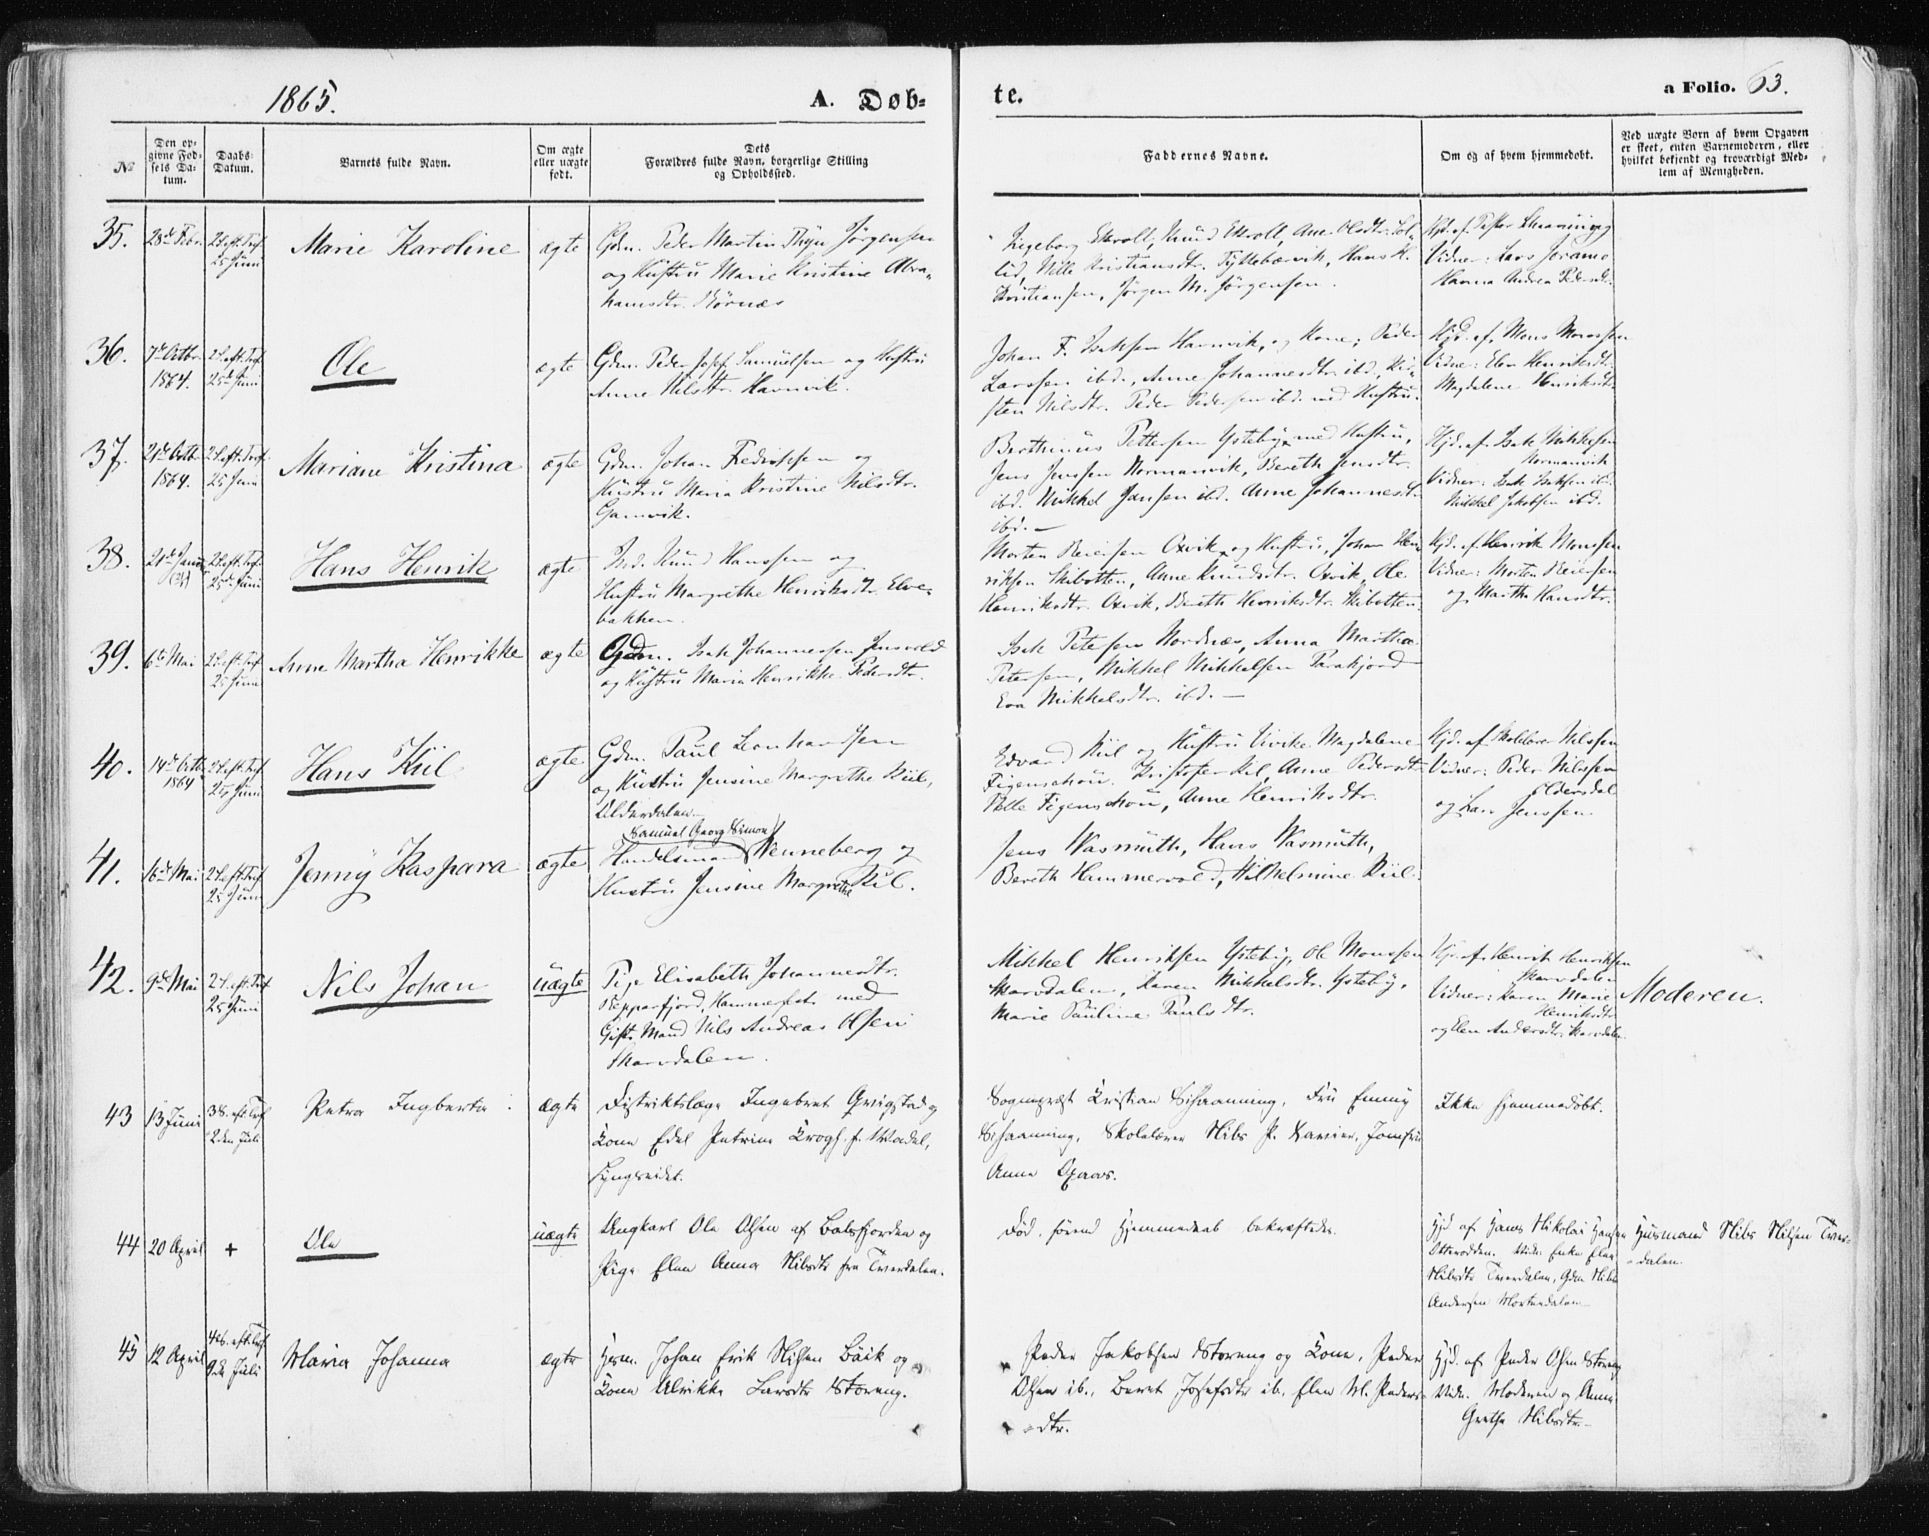 1865.
A. Døb-
te.
a Folio. 63.
No
Den op-
givne Fød-
sels Da-
tum.
Daabs-
Datum.
Barnets fulde Navn.
Om ægte
eller uægte
født.
Dets
Forældres fulde Navn, borgerlige Stilling
og Opholdssted.
Faddernes Navne.
Om og af hvem hjemmedøbt.
Ved uægte Børn af hvem Opgaven
er skeet, enten Barnemoderen, eller
hvilket bekjendt og troværdigt Med-
lem af Menigheden.
35.
28de Febr.
2 S. eft. Tref.
25 Juni
Marie Karoline
ægte
Gdm. Peder Martin Thyn Jörgensen
og Hustru Marie Kristine Abra-
hamsdtr.
Ingeborg Kroll, Knud Kroll, Ane Olsdtr.
Nille Kristiansdtr. Hans K.
Kristiansen, Jörgen M. Jörgensen.
Vidner: Lars
Hanna Andrea Pedersdtr.
36.
7de Octbr.
1864.
2 S. eft. Tref.
25de Juni
Ole
ægte
Gdm. Peder Josef Samuelsen og Hustru
Anne Nilsdtr. Havnvik.
Johan F. Isaksen Havnvik, og Kone, Peder
Larssen ibd., Anne Johannesdtr. ibd., Kir-
sten Nilsdtr. Peder Pedersen ibd. med Hustru.
Hjd. af Mons Monssen
Vidner: Elen Henriksdtr.
Magdalene Henriksdtr.
37.
21de Octbr.
1864.
2 S. eft. Tref.
25 Juni
Mariane Kristina
ægte
Gdm. Johan Fredriksen og
Hustru Maria Kristine Nilsdtr.
Gamvik.
Berthinus Pettersen Ysteby, med Hustru,
Jens Jenssen Normanvik, Bereth Jensdtr.
ibd. Mikkel Jansen ibd. Anne Johannesdtr.
ibd. —
Hjd. af Isak Mikkelsen
Normanvik
Vidner: Isak Isaksen ibd.
Mikkel Jakobsen ibd.
38.
21de Januar
2 S. eft. Tref.
25de Juni
Hans Henrik
ægte
Ind. Knud Hanssen og
Hustru Margrethe Henriksdtr. Elve-
bakken.
Morten Reiersen Oxvik og Hustru, Johan Hen-
riksen Skibotten, Anne Knudsdtr. Oxvik, Ole
Henriksdtr. Oxvik, Bereth Henriksdtr. Skibotten.
Hjd. af Henrik Monssen
Vidner: Morten Reiersen
og Martha Hansdtr.
39.
6te Mai
2 S. eft. Tref.
25 Juni
Anne Martha Henrikke
ægte
Gdm. Isak Johannessen
og Hustru Maria Henrikke Pedersdtr.
Isak Petersen Nordnæs, Anna Martha
Petersen, Mikkel Mikkelsen
Eva Mikkelsdtr. ibd. —
40.
14de Octbr.
1864
2 S. eft. Tref.
25 Juni
Hans Kiil
ægte
Gdm. Paul Leonhardsen
og Hustru Jensine Margrethe Kiil,
Olderdalen
Edvard Kiil og Hustru Vivike Magdalene
Figenschou. Kristofer Kiil, Anne Pedersdtr.
Pelle Figenschou, Anne Henriksdtr.
Hjd. af Skolelærer Nilssen
Vidner: Peder Nilssen
Olderdal
og Lars Jenssen
41.
16de Mai
2 S. eft. Tref.
25 Juni
Jenny Kaspara
ægte
Samuel Georg Simon
Handelsmand Wenneberg og
Hustru Jensine Margrethe Kiil.
Jens Wasmuth, Hans Wasmuth,
Bereth Hammervold, Wilhelmine Kiil.
42.
9de Mai
2 S. eft. Tref.
25 Juni
Nils Johan
uægte
Pige Elisabeth Johannesdtr.
Repparfjord, Hammerfest med
Gift Mand Nils Andreas Olsen
Skarvdalen.
Mikkel Henriksen Ysteby, Ole Monssen
Skarvdalen, Karen Mikkelsdtr. Ysteby,
Marie Pauline Paulsdtr.
Hjd. af Henrik Henriksen
Skarvdalen
Vidner: Karen Marie
Henriksdtr.
og Elen Andersdtr. Skarvdalen
Moderen.
43
13 Juni
3 S. eft. Tref
2den Juli
Petra Ingberta
ægte
Distriktslæge Ingebret Grigstad og
Kone Edel Petrine Krogh f. Wadel,
Lyngseidet.
Sogneprest Kristian Schaanning, Fru Emmy
Schaanning, Skolelærer Nils P. Xavier, Jomfru
Anna
Ikke hjemmedöbt.
44
20 April
+
Ole
uægte
Ungkarl Ole Olsen af Balsfjorden og
Pige Elen Anna Nilsdtr fra Tverdalen.
Död förend Hjemmedaab bekræftedes.
Hjd af Hans Nikolai Hansen
Vidn. Enke Elen
Nilsdtr Tverdalen, Gdm Nils
Andersen
Husmand Nils Nilsen Tver-
dalen.
45
12 April
4 S. eft. Tref
9de Juli
Maria Johanna
ægte
Gdm. Johan Erik Nilsen Bäik og
Kone Ulrikke Larsdtr Storeng.
Peder Jakobsen Storeng og Kone, Peder
Olsen ib., Beret Josefsdtr ib. Elen M. Peders-
dtr.
Hjd. af Peder Olsen Storeng
Vidn. Moderen og Anne
Grethe Nilsdtr.